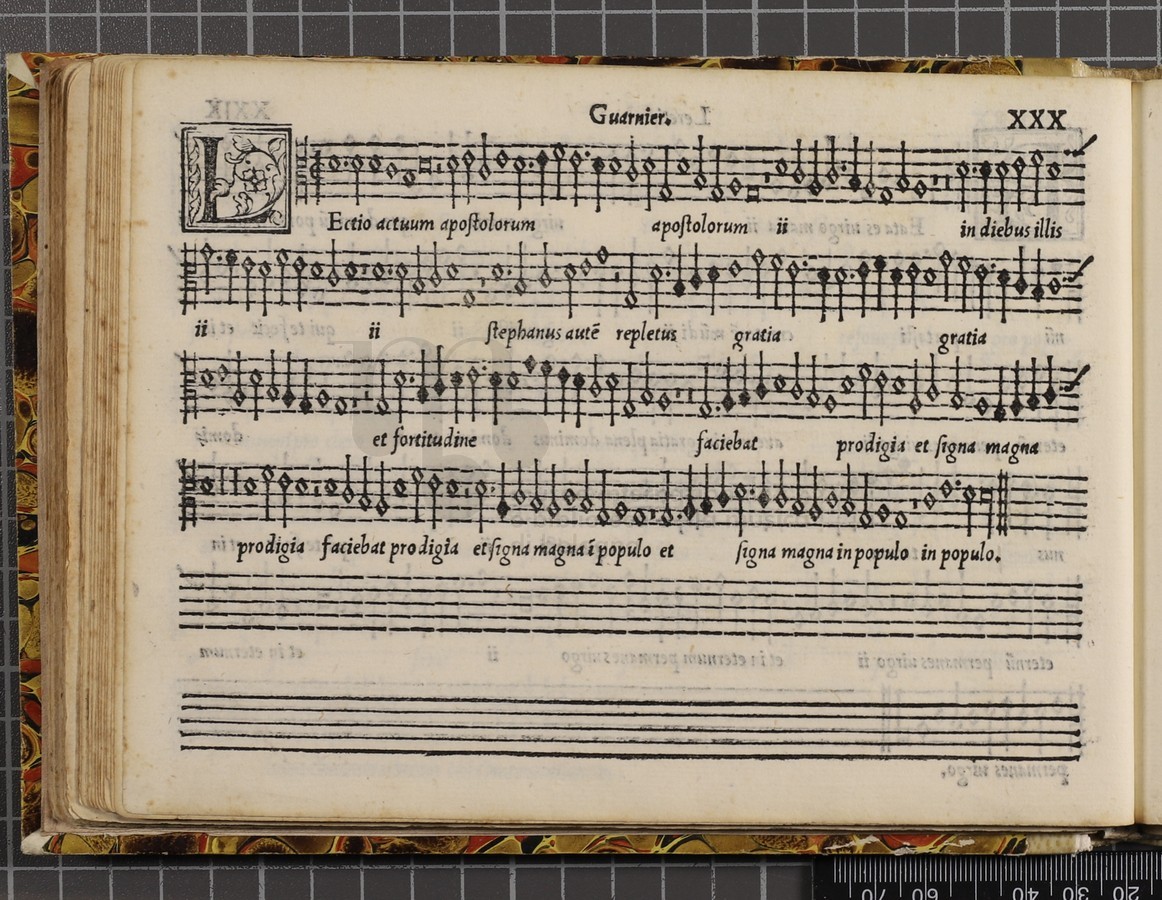 Guarnier.
XXX
LEctio actuum apostolorum apostolorum ii in diebus illis
ii ii stephanus autē repletus gratia gratia
et fortitudine faciebat prodigia et signa magna
prodigia faciebat prodigia et signa magna ī populo et signa magna in populo in populo.
70 60 40 30 20